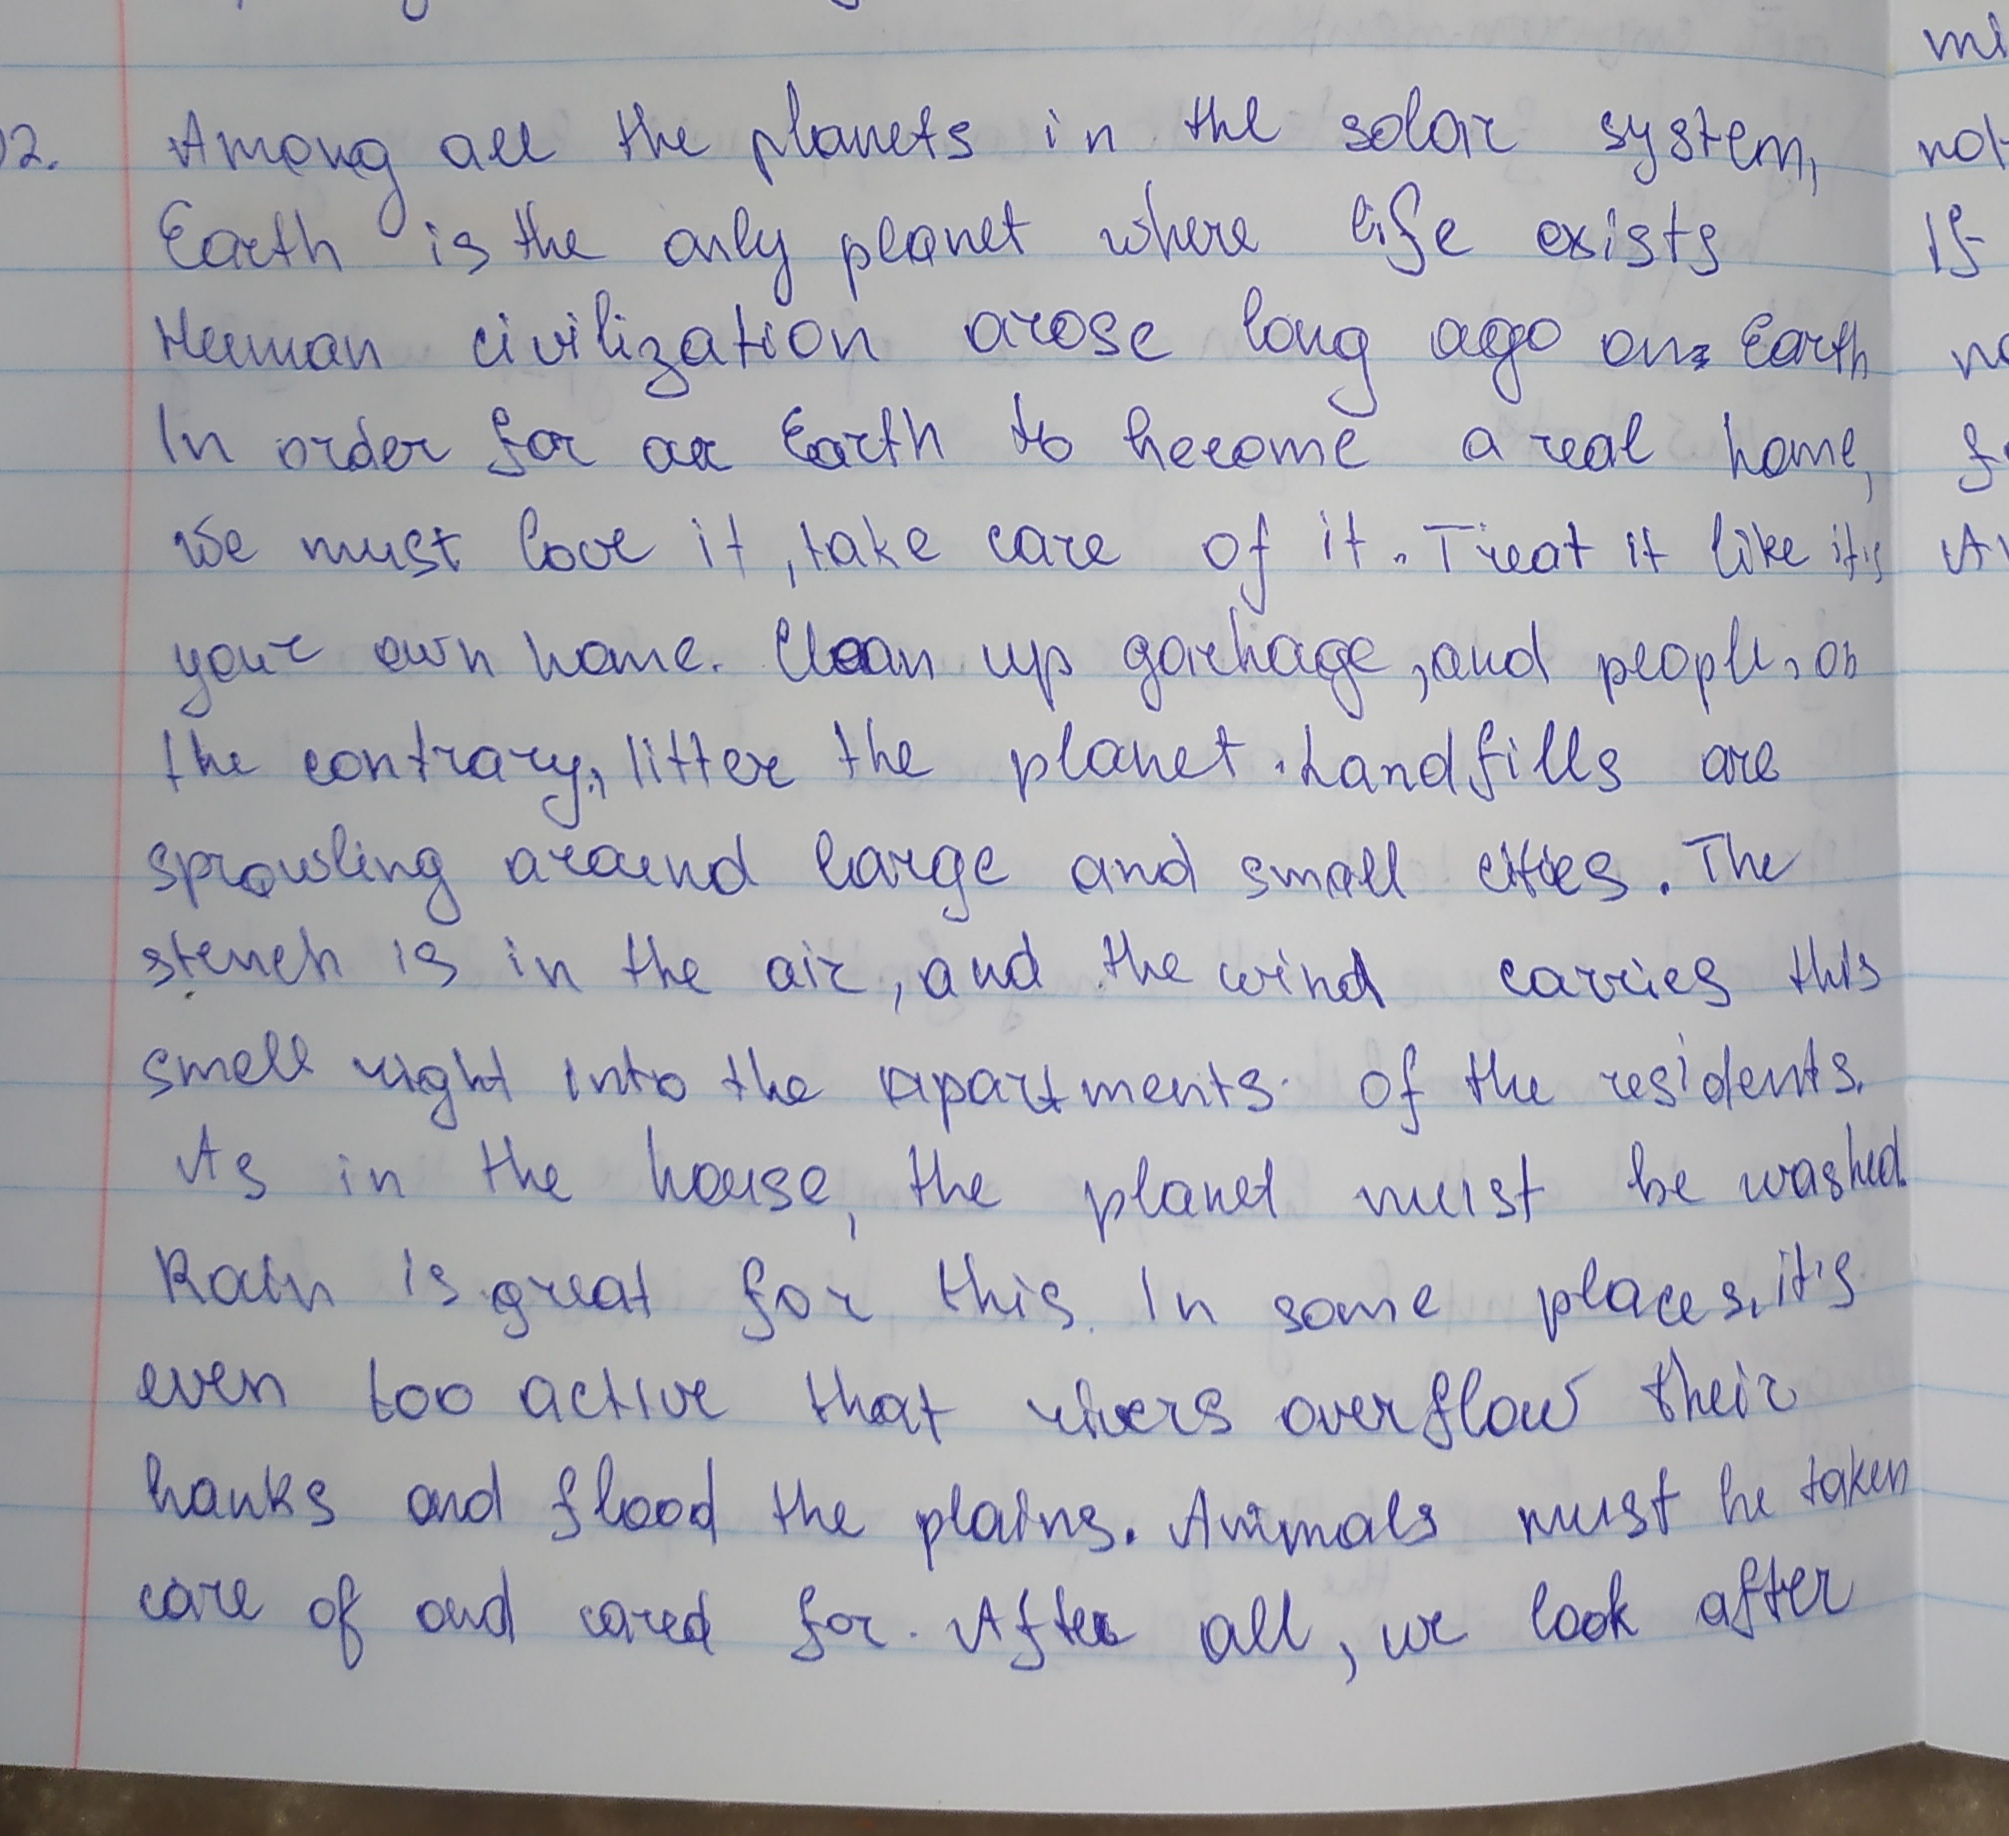 2. Among all the planets in the solar system,
Earth is the only planet where life exists
Human civilization arose long ago on Earth
In order for Earth to become a real home,
we must love it, take care of it. Treat it like it's
your own home. Clean up garbage, and people, on
the contrary, litter the planet. Landfills are
sprowling around large and small cities. The
stench is in the air, and the wind carries this
smell right into the apartments of the residents.
As in the house, the planet must be washed.
Rain is great for this. In some places, it's
even too active that rivers overflow their
banks and flood the plains. Animals must be taken
care of and cared for. After all, we look after